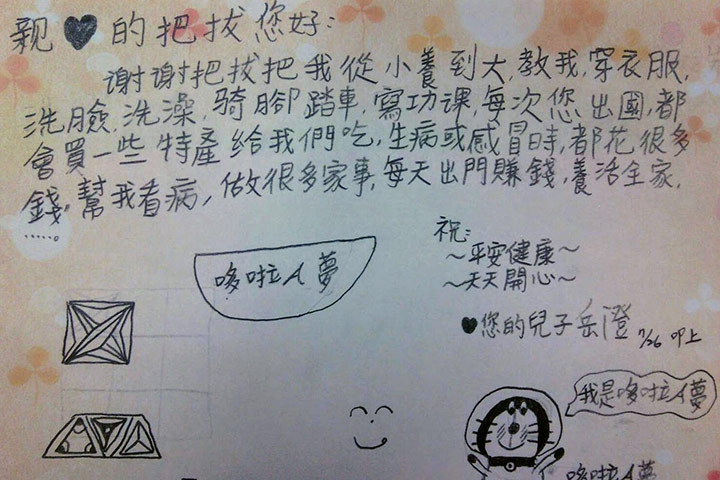 親♥的把拔您好:
谢谢把拔把我從小養到大,教我,穿衣服,
洗臉,洗澡,騎腳踏車,寫功课,每次您出國,都
會買一些特產給我們吃,生病或感冒時,都花很多
錢,幫我看病,做很多家事,每天出門賺錢,養活全家,
......。
祝:
~平安健康~
~天天開心~
哆啦A夢
♥您的兒子岳澄 7/26 叩上
我是哆啦A夢
哆啦A夢